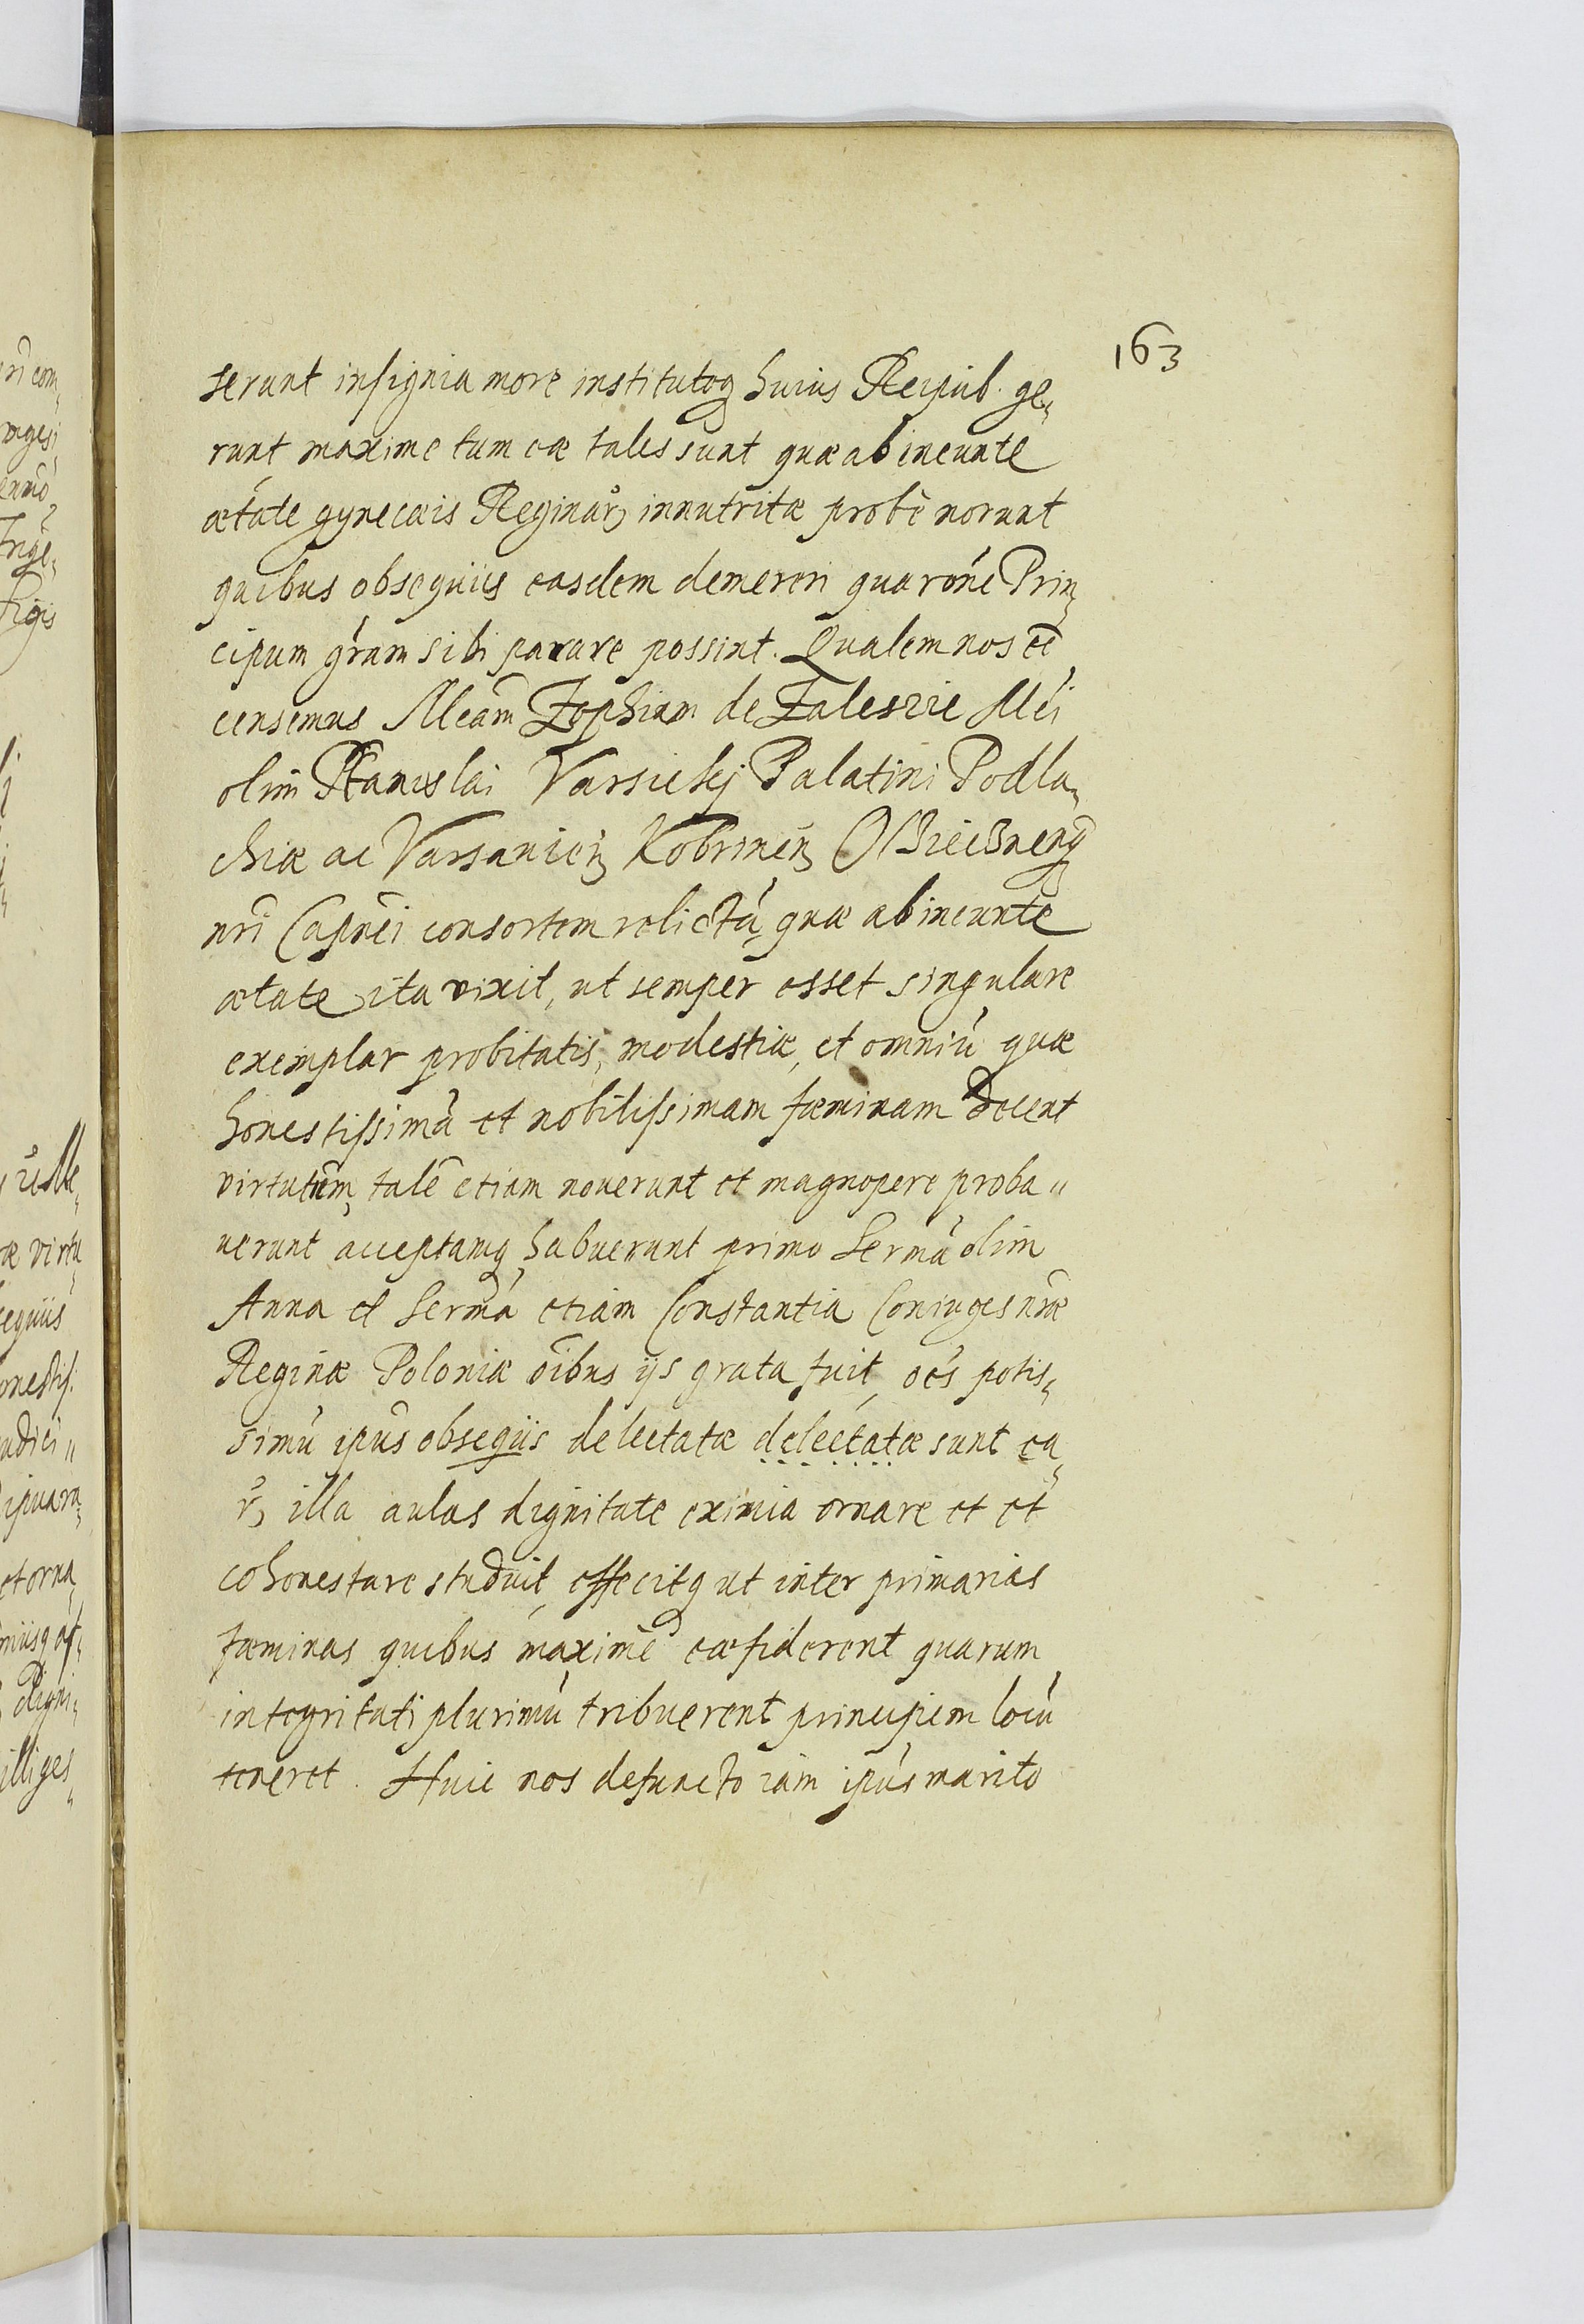 163
serunt insignia more institutoq huius Reipub. ge„
runt maxime tum eæ tales sunt quæ ab ineunte
ætate gynecæis Reginar, innutritæ probè norunt
quibus obsequiis easdem demereri qua rõne Prin„
cipum grãm sibi parare possint. Qualem nos eẽ
censemus Mcãm Zophiam de Zaleszie Mci
olim Stanislai Varsicky Palatini Podla„
chiæ ac Varsavieñ Kobrineñ
nri Capnei consortem relictã, quæ ab ineunte
ætate ita vixit, ut semper esset singulare
exemplar probitatis, modestiæ, et omniũ quæ
honestissimã et nobilissimam fæminam decent
virtutum, talẽ etiam nouerunt et magnopere proba„
uerunt acceptamq habuerunt primo Sermã olim
Anna et Sermã etiam Constantia Coniuges nræ
Reginæ Poloniæ oĩbus ijs grata fuit, oẽs potis„
simũ ipũs obseqiis delectatæ delectatæ sunt ea„
r, illa aulas dignitate eximia ornare et et
cohonestare studuit, effecitq ut inter primarias
fæminas quibus maximẽ eæ fiderent quarum
integritati plurimũ tribuerent principem locũ
teneret. Huic nos defuncto iam ipũs marito